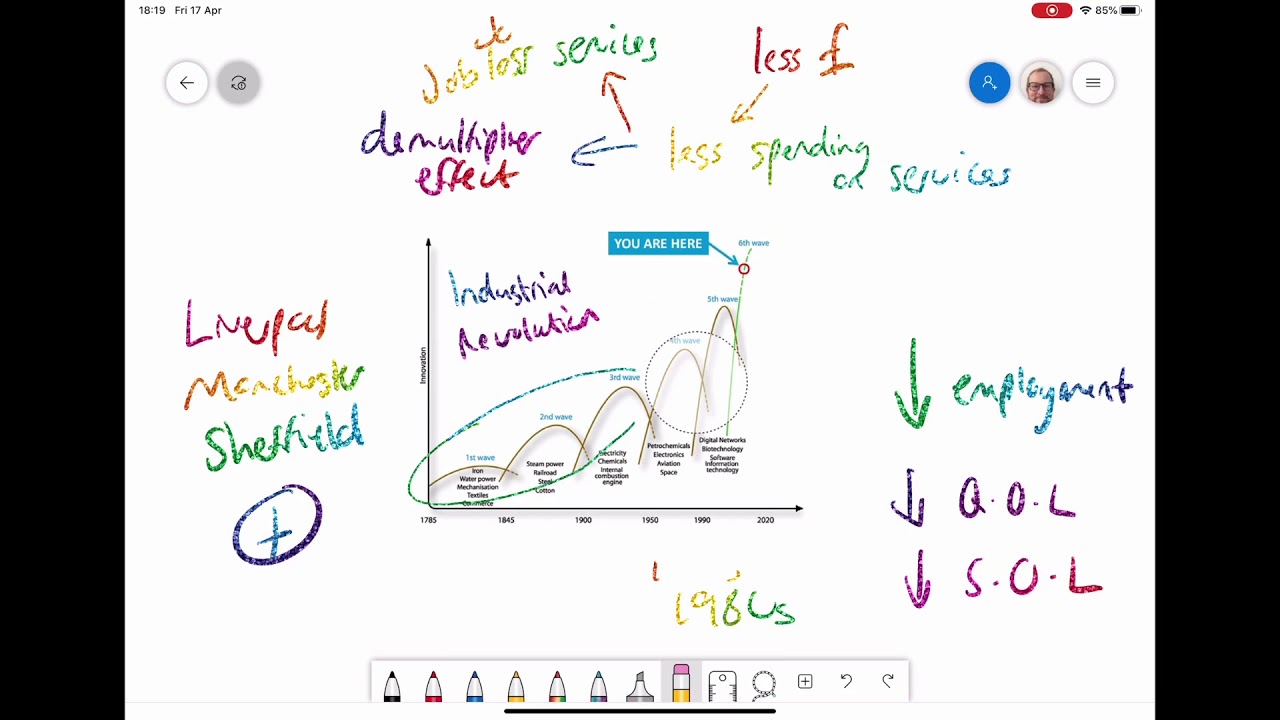 18:19 Fri 17 Apr
85%
Job loss services
less £
demultiplier
effect
less spending
on services
YOU ARE HERE
6th wave
5th wave
4th wave
3rd wave
2nd wave
1st wave
Industrial
Revolution
Innovation
Liverpool
Manchester
Sheffield
+
Iron
Water power
Mechanisation
Textiles
Commerce
Steam power
Railroad
Steel
Cotton
Electricity
Chemicals
Internal
combustion
engine
Petrochemicals
Electronics
Aviation
Space
Digital Networks
Biotechnology
Software
Information
technology
1785 1845 1900 1950 1990 2020
↓ employment
↓ Q.O.L
↓ S.O.L
1980s